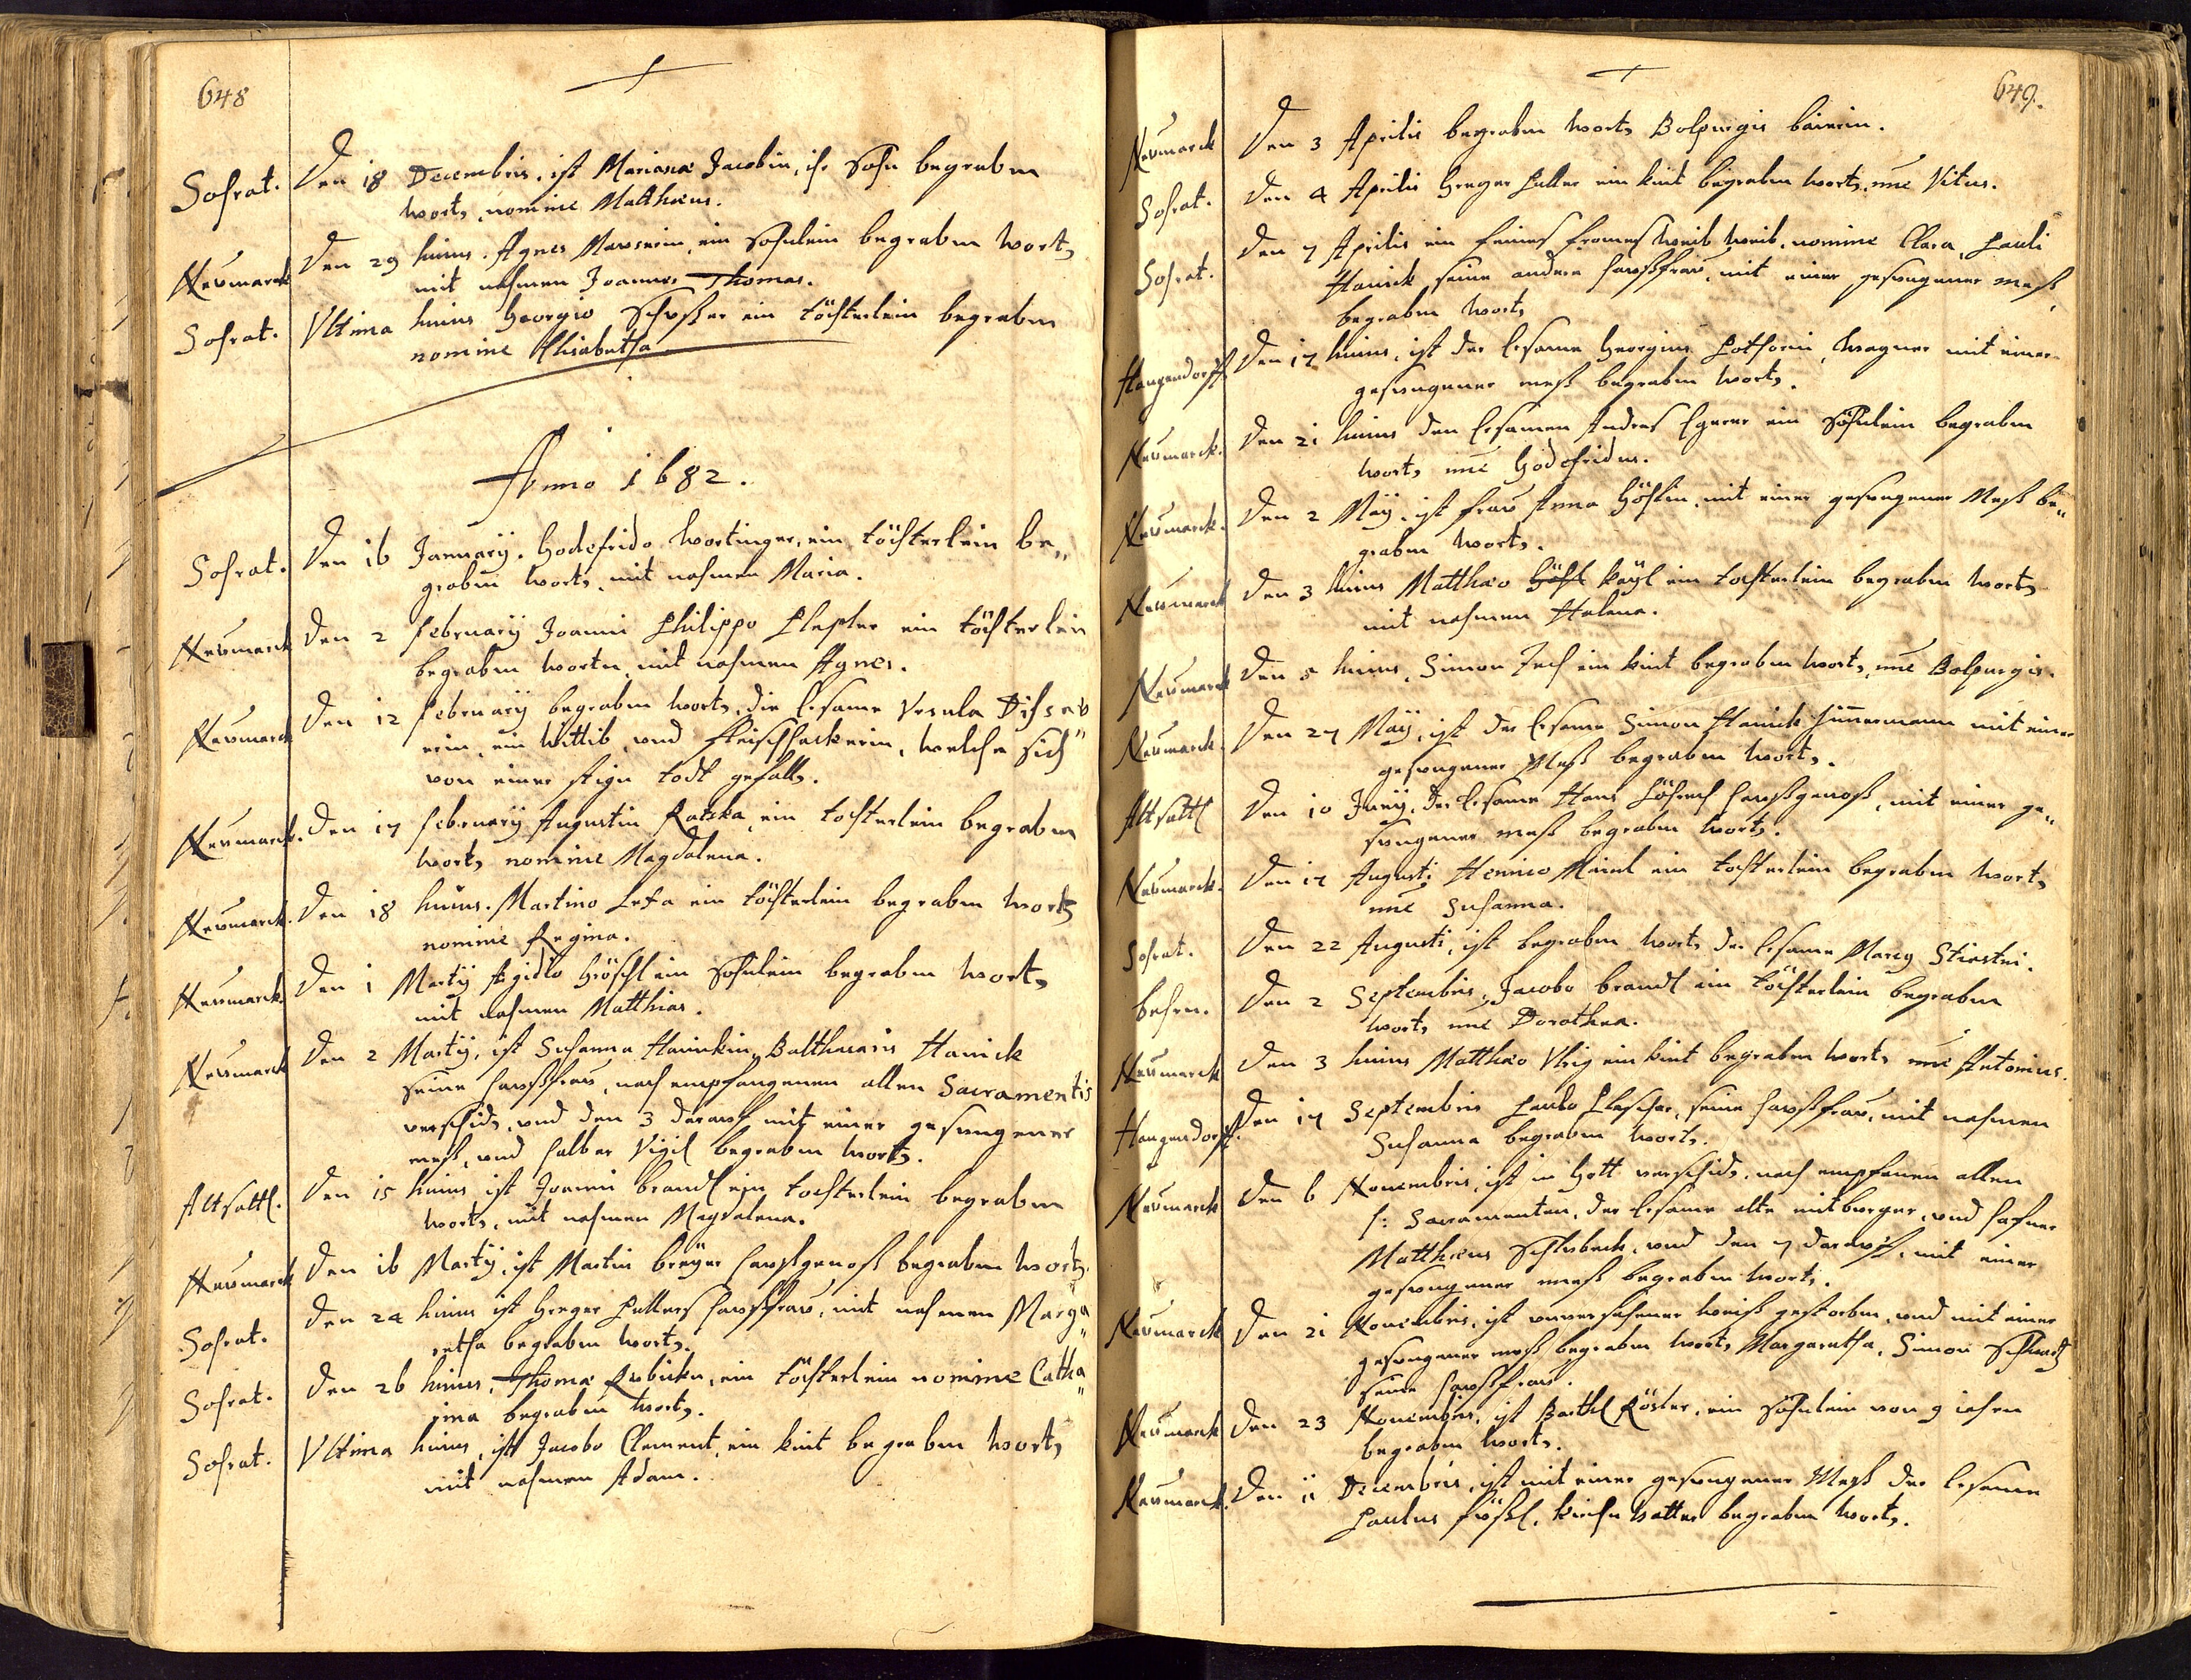 648
Sofrat. Den 18 Decembris, ist Mariana Jacobin, ihr Sohn begraben
worden, nomine Matthæus.
Neumarck Den 29 huius. Agnes ein Söhnlein begraben worden
mit nahmen Joannes Thomas.
Sofrat. Ultima huius Georgio Schuster ein töchterlein begraben
nomine Elisabetha
Anno 1682.
Sofrat. Den 16 January. Godefrido Wortinger, ein töchterlein be„
graben worden, mit nahmen Maria.
Neumarck Den 2 February Joanni Philippo ein töchterlein
begraben worden, mit nahmen Agnes.
Neumarck Den 12 February begraben worden, die Ersame Ursula
erin, ein Wittib, und Fleischhackerin, welche sich
von einer stigen todt gefallen.
Neumarck. Den 17 February Augustin Ratzka, ein tochterlein begraben
worden nomine Magdalena.
Neumarck. Den 18 huius. Martino Lexa ein töchterlein begraben worden
nomine Regina.
Neumarck. Den 1 Martij Egidio Gröschl ein Söhnlein begraben worden
mit nahmen Matthias.
Neumarck Den 2 Martij, ist Susanna Hanickin, Balthasaris Hanick
seine haussfrau, nach empfangenen allen Sacramentis
verschiden, und den 3 darauf mit einer gesungener
mess, und halber Vigil begraben worden.
Altsattl. Den 15 huius ist Joanni Brandl ein tochterlein begraben
worden, mit nahmen Magdalena.
Neumarck Den 16 Martij, ist Martin Breyer haussgenoss begraben worden.
Sofrat. Den 24 huius ist Greger Pullers haussfrau, mit nahmen Marga„
retha begraben worden.
Sofrat. Den 26 huius, Thomæ Rubicken, ein töchterlein nomine Catha„
rina begraben worden.
Sofrat. Ultima huius, ist Jacobo Clement, ein kint begraben worden
mit nahmen Adam.
649.
Neumarck Den 3 Aprilis begraben worden Bolpurgis bäierin.
Sofrat. Den 4 Aprilis Greger Puller ein kint begraben worden, nne Vitus.
Sofrat. Den 7 Aprilis ein feines fromes Weib weib, nomine Clara, Pauli
Hanick seine andere haussfrau, mit einer gesungener mess
begraben worden
Haugendorff. Den 17 huius, ist der Ersame Georgius, Wagner mit einer
gesungener mess begraben worden.
Neumarck. Den 21 huius dem Ersamen Andreas Egerer ein Söhnlein begraben
worden nne Godefridus.
Neumarck. Den 2 Maij, ist frau Anna Höslin, mit einer gesungener Mess be„
graben worden.
Neumarck Den 3 huius Matthæo Hösl Käyl ein tochterlein begraben worden
mit nahmen Helena.
Neumarck Den 5 huius, Simon Zech ein kint begraben worden, nne Bolpurgis.
Neumarck. Den 27 Maij, ist der Ersame Simon Hanick Zimmermann mit einer
gesungener Mess begraben worden.
Altsattl Den 10 Junij, der Ersame Hans haussgenoss, mit einer ge„
sungener mess begraben worden.
Neumarck. Den 17 Augusti Henrico Meinl ein tochterlein begraben worden
nne Susanna.
Sofrat. Den 22 Augusti, ist begraben worden der Ersame Marcy.
Behrn. Den 2 Septembris, Jacobo Brandl ein töchterlein begraben
worden nne Dorothea.
Neumarck Den 3 huius Matthæo Uhrig ein kint begraben worden nne Antonius.
Haugendorff. Den 17 Septembris Paulo Plascher, seine haussfrau, mit nahmen
Susanna begraben worden.
Neumarck Den 6 Novembris, ist in Gott verschiden, nach empfanen allen
h: Sacramenten, der Ersame alte mitburger, und hafner
Matthæus Schlubeck, und den 7 darauf, mit einer
gesungener mess begraben worden.
Neumarck Den 21 Novembris, ist unversehener weiss gestorben, und mit einer
gesungener mess begraben worden, Margaretha, Simon Schwartz
seine haussfrau.
Neumarck Den 23 Novembris, ist Barthl Röster, ein Söhnlein von 9 iahren
begraben worden.
Neumarck. Den 11 Decembris, ist mit einer gesungener Mess der Ersame
Paulus Fössl, kirchen Vatter begraben worden.